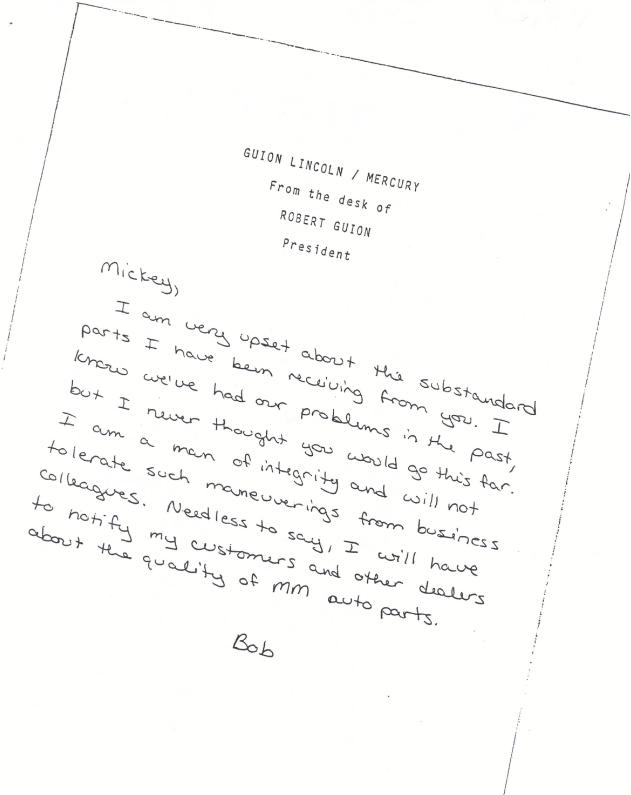 GUION LINCOLN / MERCURY
From the desk of
ROBERT GUION
President
Mickey,
I am very upset about the substandard
parts I have been receiving from you. I
know we've had our problems in the past,
but I never thought you would go this far.
I am a man of integrity and will not
tolerate such maneuverings from business
colleagues. Needless to say, I will have
to notify my customers and other dealers
about the quality of MM auto parts.
Bob